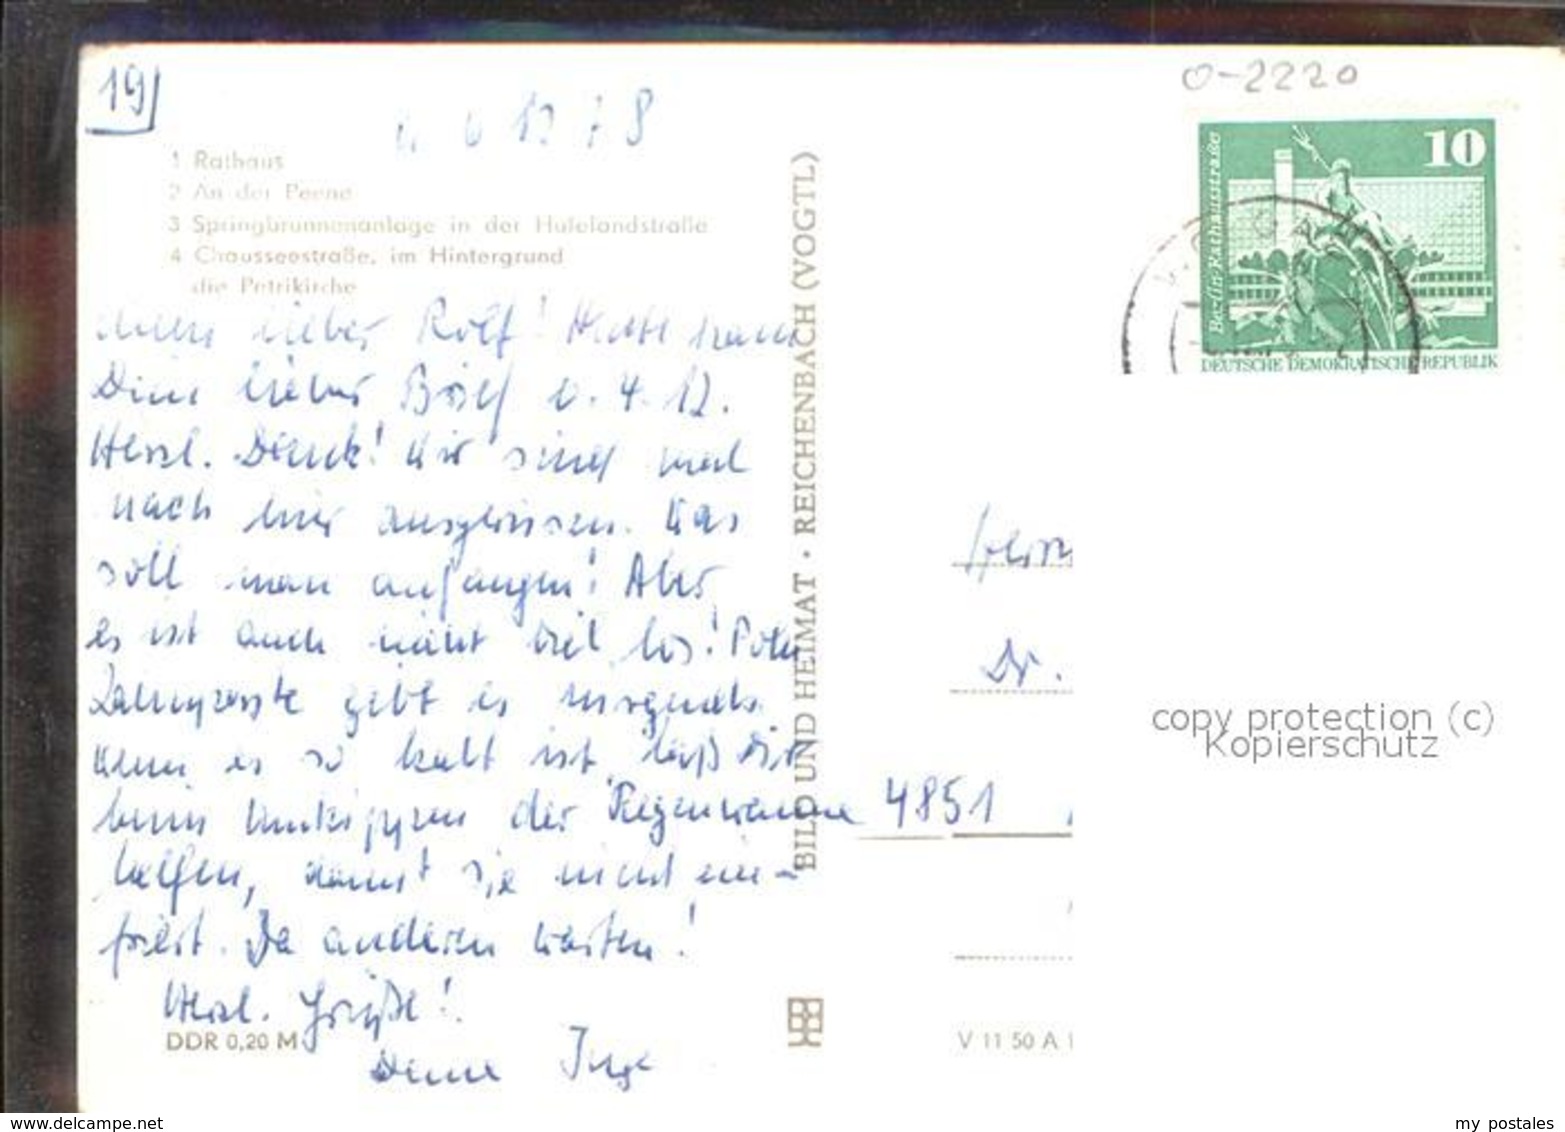 19
0-2220
1 Rathaus
2 An der Peene
3 Springbrunnenanlage in der Hufelandstraße
4 Chausseestraße, im Hintergrund
die Petrikirche
10
Berlin-Rathausstraße
DEUTSCHE DEMOKRATISCHE REPUBLIK
BILD UND HEIMAT · REICHENBACH (VOGTL)
lieber Rolf! Heute kam
Dein lieber Brief v. 4. 12.
Herzl. Dank! Wir sind mal
nach hier ausgewiesen. Was
soll man anfangen! Aber
es ist auch nicht viel los!
gibt es nirgends.
Wenn es so kalt ist, laß Dir
beim Umkippen der Regenwanne
helfen, damit sie nicht ein-
friert. Die anderen warten!
Herzl. Grüße!
Deine Inge
Herrn
Dr.
4851
copy protection (c)
Kopierschutz
DDR 0,20 M
V 11 50 A 1
www.delcampe.net
my_postales